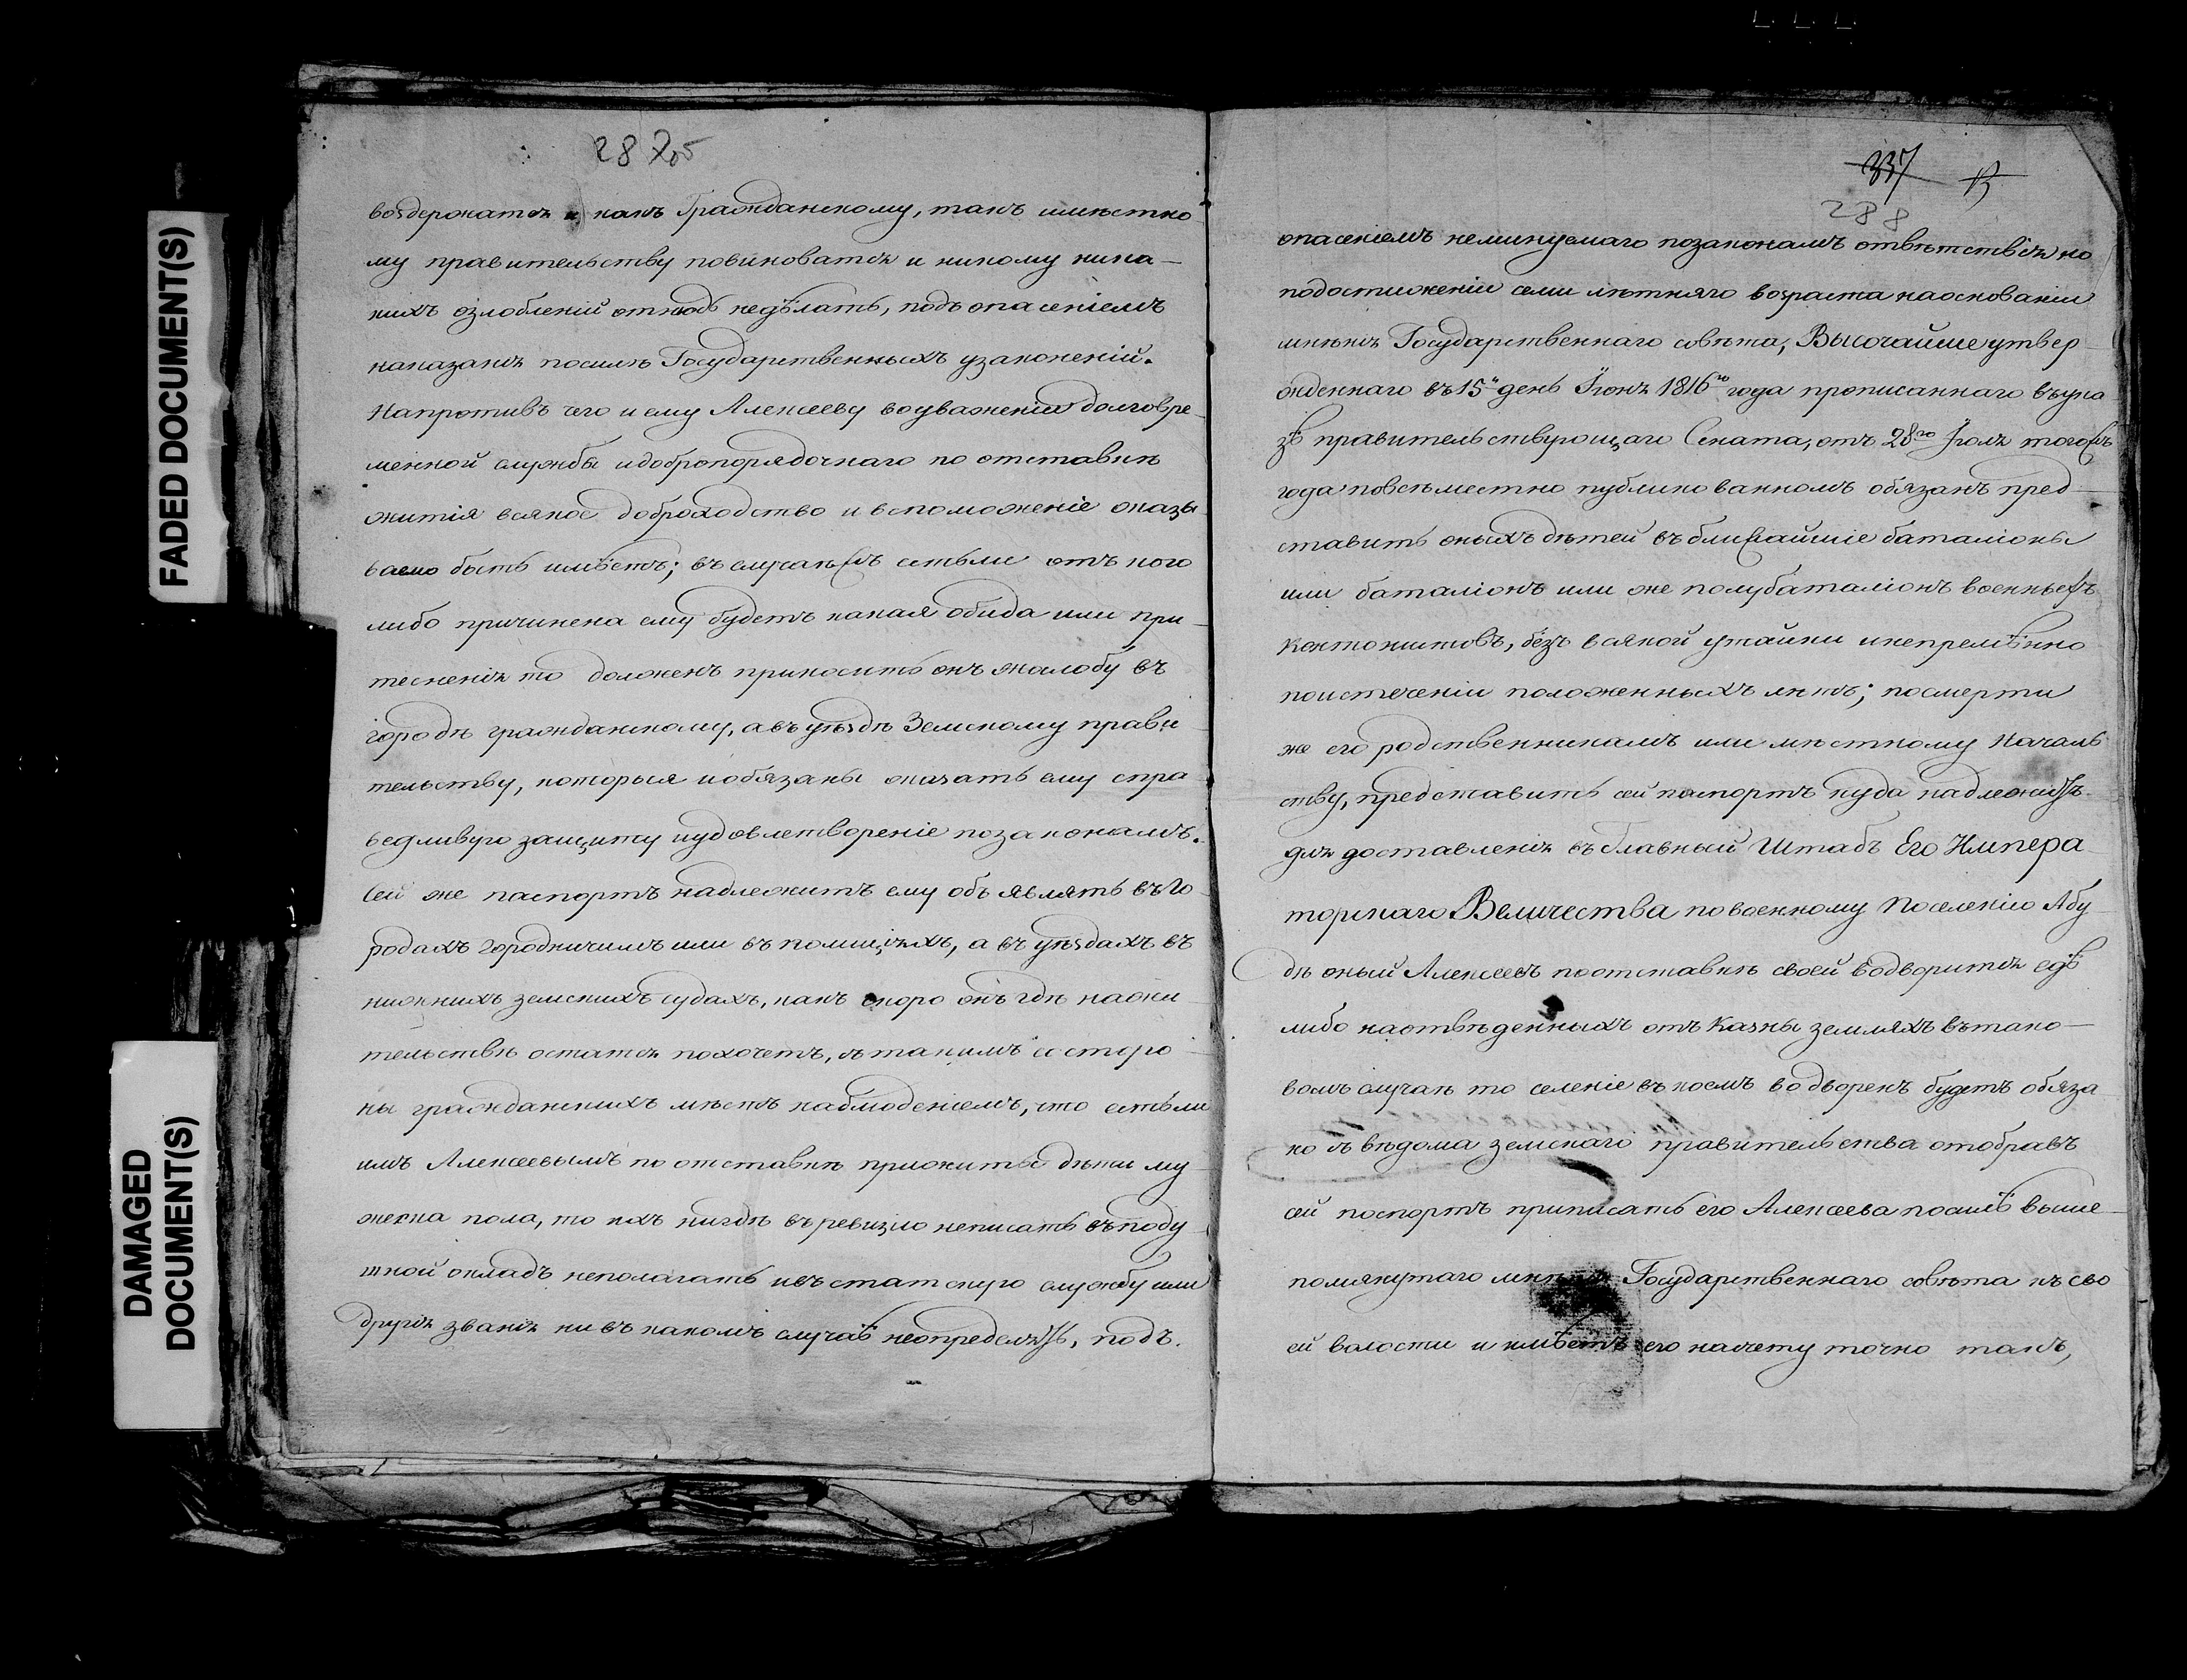 FADED DOCUMENT(S)
DAMAGED
DOCUMENT(S)
воздержатся и какъ Гражданскому, такъ имѣстно
му правительству повиноватся и никому ника-
кихъ озлобленій отнюдь недѣлать, подъ опасеніемъ
наказанія посилѣ Государственныхъ узаконеній.
Напротивъ чего и ему Алексееву воуваженіи долговре
менной службы идобропорядочнаго по отставкѣ
житія всякое доброходство и вспоможеніе оказы
ваемо быть имѣетъ; въ случаѣжъ естьли отъ кого
либо причинена ему будетъ какая обида или при-
тесненія то долженъ приносить онъ жалобу въ
городѣ гражданскому, авъ уѣздѣ Земскому прави
тельству, которыя иобязаны оказать ему спра
ведливую защиту иудовлетвореніе позаконамъ.
Сей же паспортъ надлежитъ ему объявлять въ Го
родахъ городничимъ или въ полиціяхъ, а въ уѣздахъ въ
нижнихъ земскихъ судахъ, какъ скоро онъ гдѣ нажи
тельствѣ остатся похочетъ, съ такимъ со сторо
ны гражданскихъ мѣстъ наблюденіемъ, что естьли
имъ Алексеевымъ по отставкѣ прижиты дѣти му
жекка пола, то ихъ нигдѣ въ ревизію неписать въ поду
шной окладъ неполагать ивъ статскую службу или
другія званія ни въ какомъ случаѣ неопределять, подъ.
337
288
опасеніемъ неминуемаго позаконамъ отвѣтствія но
подостиженіи семи лѣтняго возраста наоснованіи
мнѣнія Государственнаго совѣта, Высочайше утвер
жденнаго въ 15й день Іюня 1816го года прописаннаго въ ука
зѣ правительствующаго Сената, отъ 28го Іюля тогожъ
года повсѣместно публикованномъ обязанъ пред-
ставить оныхъ дѣтей въ ближайшіе баталіоны
или баталіонъ или же полубаталіонъ военныхъ
кантонистовъ, безъ всякой утайки инепремѣнно
поистеченіи положенныхъ лѣтъ; посмерти
же его родственникамъ или мѣстному Началь
ству, представить сей паспортъ куда надлежитъ.
для доставленія въ Главный Штабъ Его Импера
торскаго Величества по военному Поселенію Абу
дѣ оный Алексеевъ поотставкѣ своей водворится гдѣ
либо наотвѣденныхъ отъ Казны земляхъ въ тако-
вомъ случаѣ то селеніе въ коемъ водворенъ будетъ обяза
но съ вѣдома земскаго правительства отобравъ
сей поспортъ приписать его Алексеева посилѣ выше-
помянутаго мнѣнія Государственнаго совѣта къ сво
ей волости и имѣетъ его насчету точно такъ,